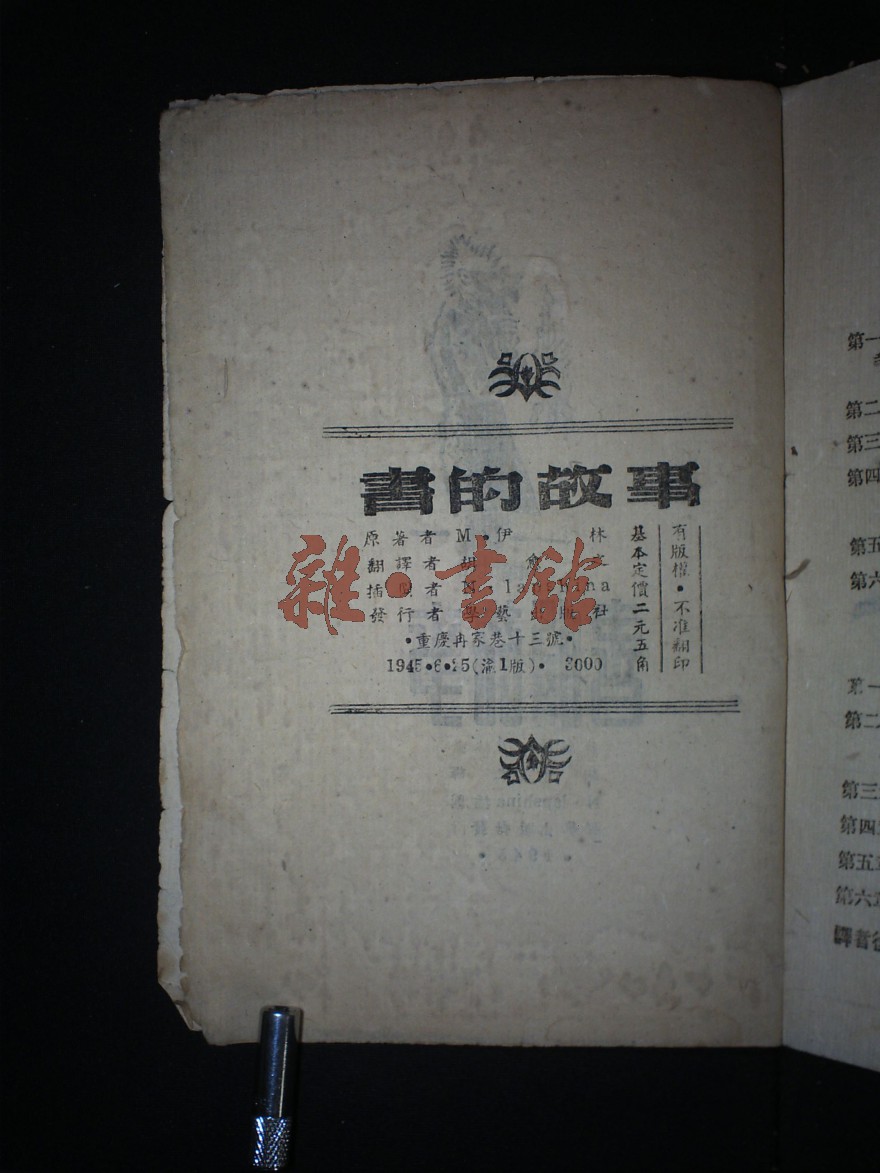 書的故事
原著者 M·伊林
翻譯者 胡愈
插 者 N
發行者 學藝 版社
·重慶冉家巷十三號·
1945·6·25(渝1版)· 3000
基本定價二元五角
有版權·不准翻印
雜·書館
第一
第二
第三
第四
第五
第六
第一
第二
第三
第四
第五
第六
譯者